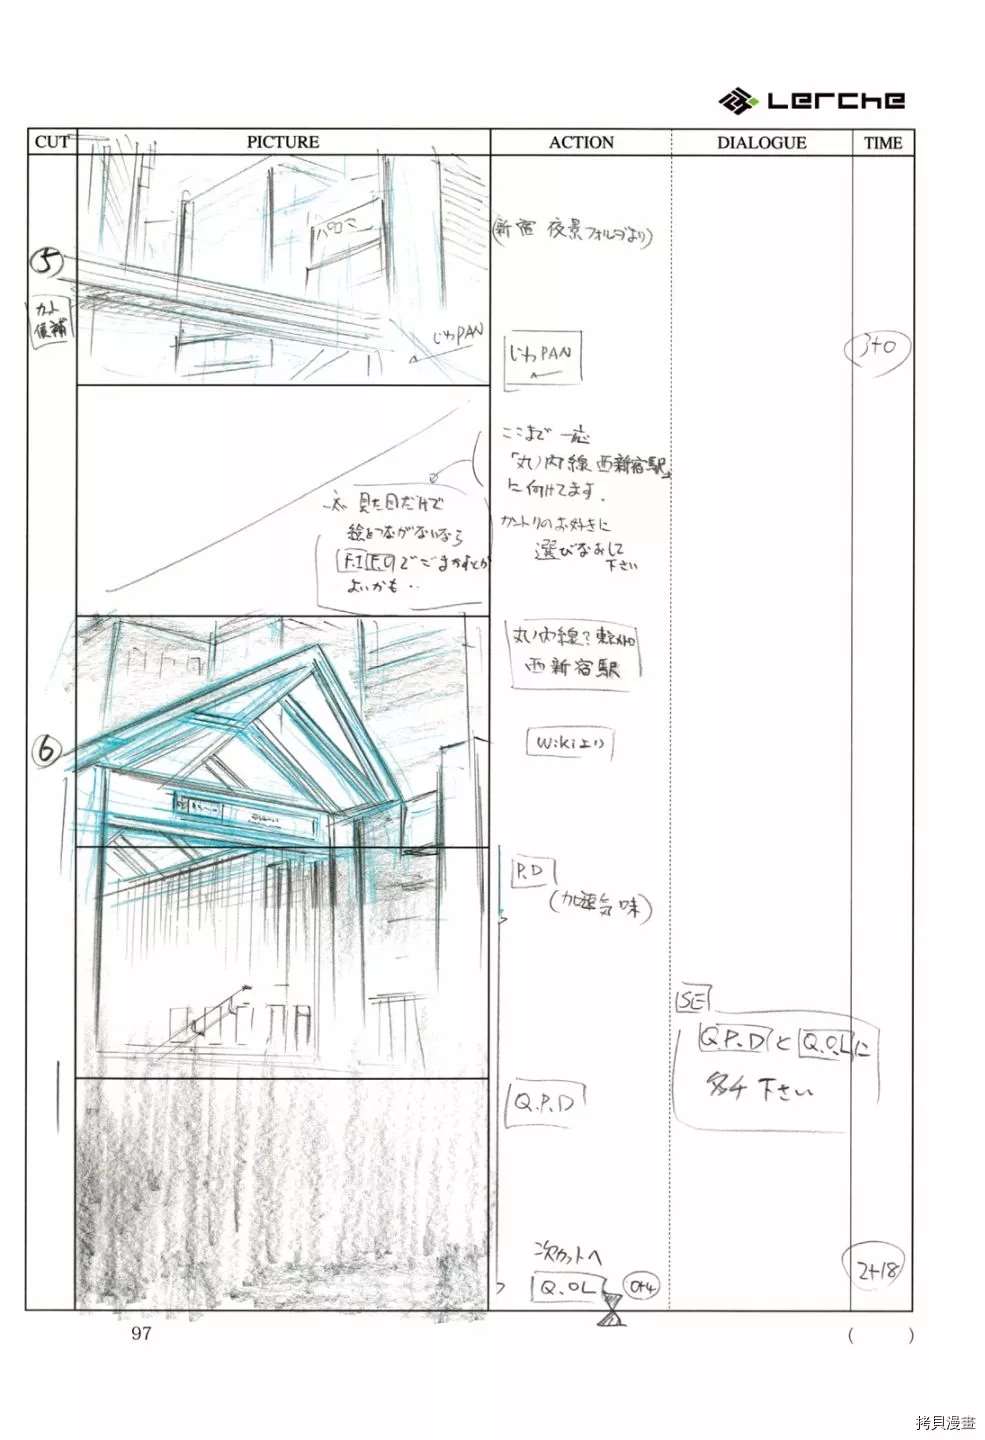 Lerche
CUT
PICTURE
ACTION
DIALOGUE
TIME
5
カット
候補
パセラ
じわPAN
(新宿 夜景フォルダより)
じわPAN
3+0
ここまで一応
「丸ノ内線 西新宿駅」
に向けてます。
カントクのお好きに
選びなおして
下さい
見た目だけで
絵をつながないなら
F.I F.Oでごまかすとか
よいかも‥
6
丸ノ内線?東京メトロ
西新宿駅
wikiより
P.D
(加速気味)
SE
Q.P.DとQ.O.Lに
タチ下さい
Q.P.D
次カットへ
Q.OL
0+4
2+18
97
( )
拷貝漫畫